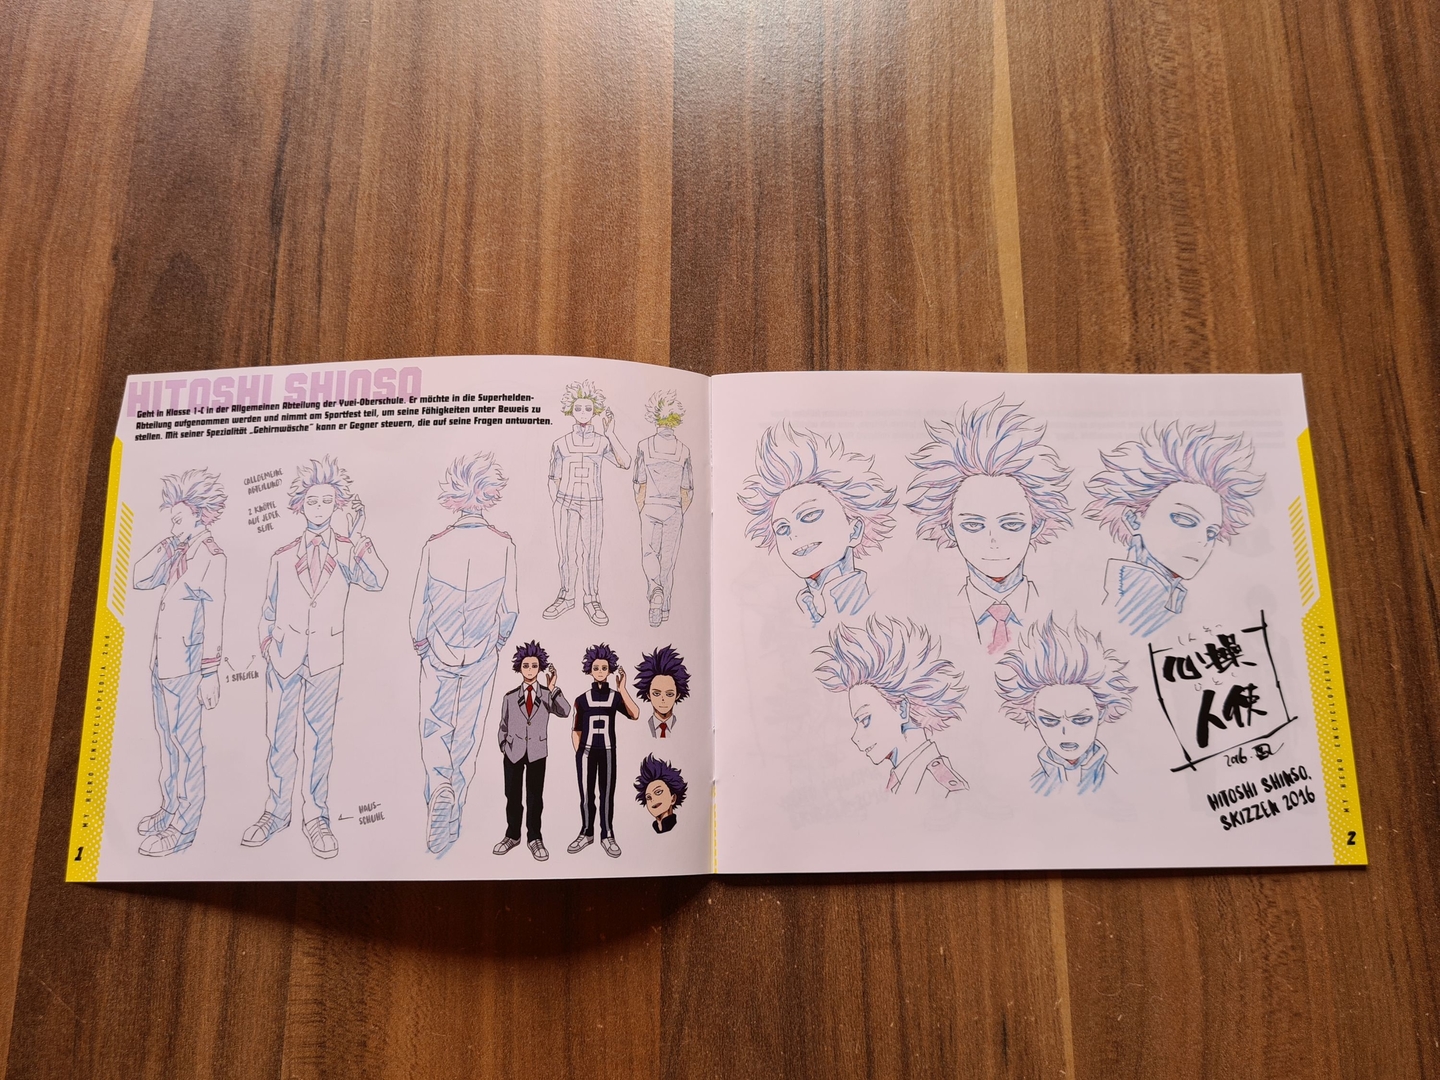 HITOSHI SHINSO
Geht in Klasse 1-C in der Allgemeinen Abteilung der Yuei-Oberschule. Er möchte in die Superhelden-
Abteilung aufgenommen werden und nimmt am Sportfest teil, um seine Fähigkeiten unter Beweis zu
stellen. Mit seiner Spezialität „Gehirnwäsche“ kann er Gegner steuern, die auf seine Fragen antworten.
(ALLGEMEINE
ABTEILUNG)
2 KNÖPFE
AUF JEDER
SEITE
1 STREIFEN
HAUS-
SCHUHE
MY HERO ENCYCLOPEDIA 2nd
1
しんそう
心操
ひとし
人使
2016.
HITOSHI SHINSO.
SKIZZEN 2016
MY HERO ENCYCLOPEDIA 2nd
2